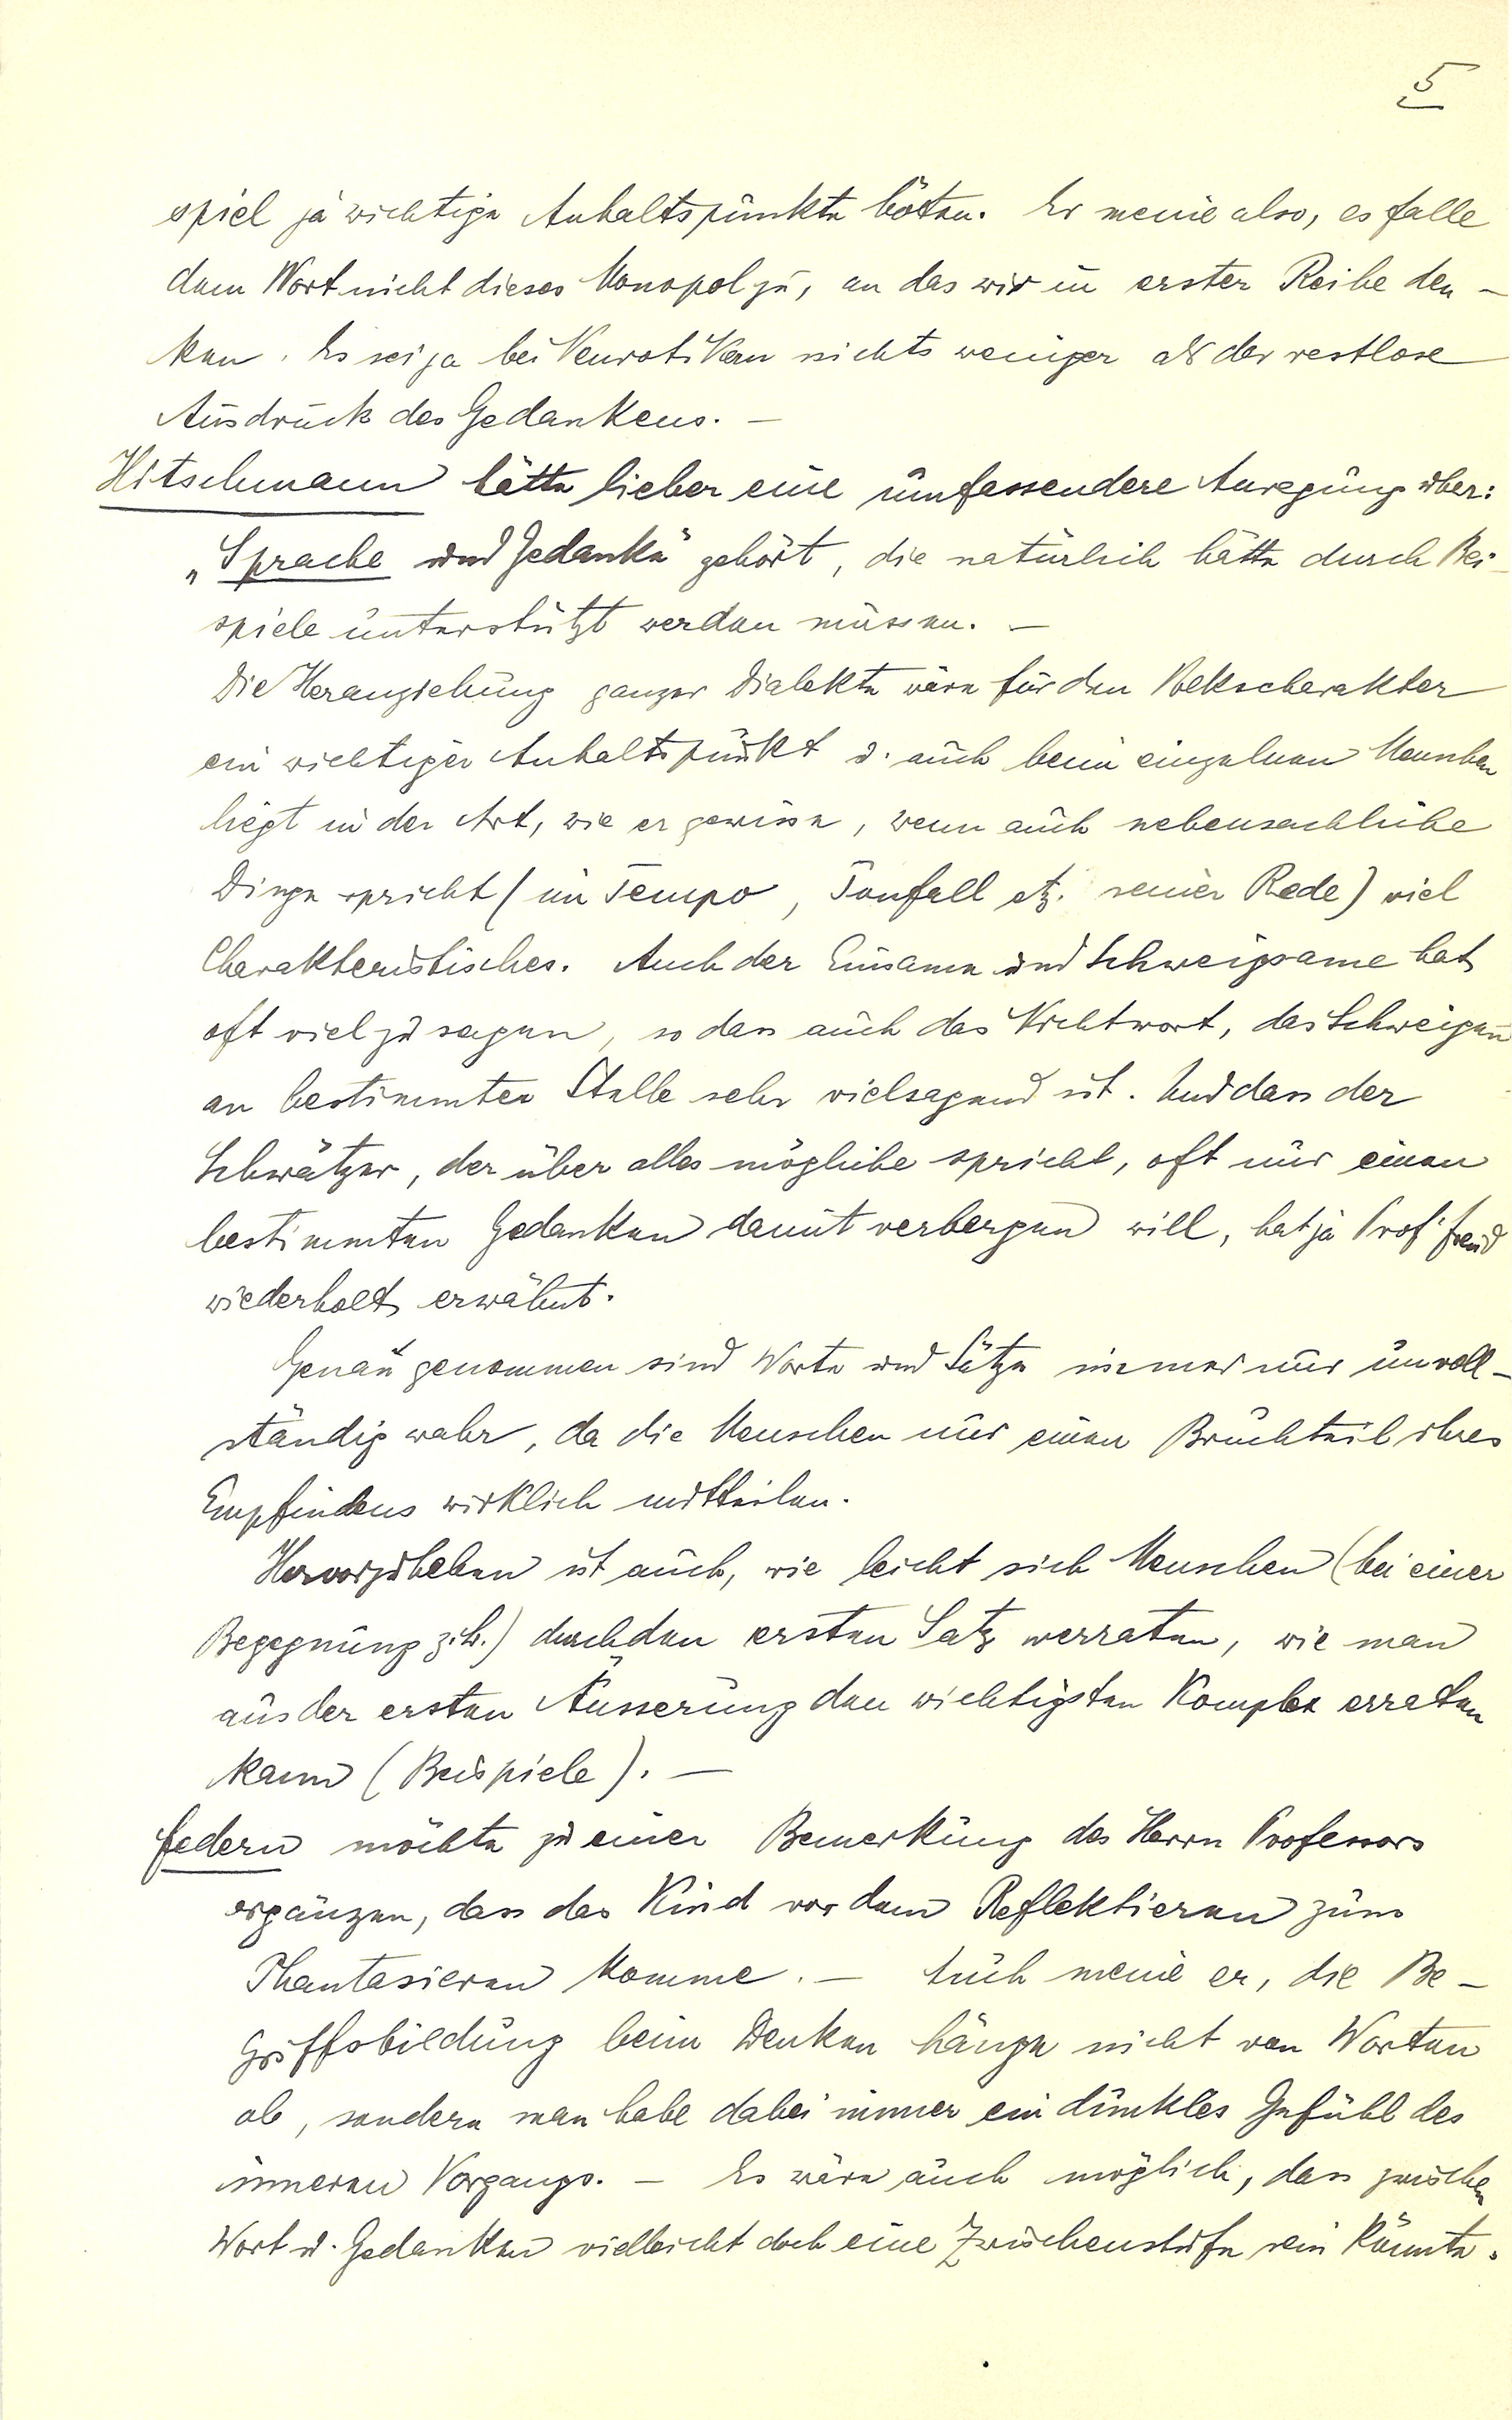 5
spiel ja wichtige Anhaltspunkte böten. Er meine also, es falle
dem Wort nicht dieses Monopol zu, an das wir in erster Reihe den-
ken. Es sei ja bei Neurotikern nichts weniger als der restlose
Ausdruck des Gedankens. —
Hitschmann hätte lieber eine umfassendere Anregung über:
„Sprache und Gedanke" gehört, die natürlich hätte durch Bei-
spiele unterstützt werden müssen. —
Die Heranziehung ganzer Dialekte wäre für den Volkscharakter
ein wichtiger Anhaltspunkt u. auch beim einzelnen Menschen
liegt in der Art, wie er gewisse, wenn auch nebensächliche
Dinge spricht (im Tempo, Tonfall etz. seiner Rede) viel
Charakteristisches. Auch der Einsame und Schweigsame hat
oft viel zu sagen, so dass auch das Nichtwort, das Schweigen
an bestimmter Stelle sehr vielsagend ist. Und dass der
Schwätzer, der über alles mögliche spricht, oft nur einen
bestimmten Gedanken damit verbergen will, hat ja Prof. Freud
wiederholt erwähnt.
Genau genommen sind Worte und Sätze immer nur unvoll-
ständig wahr, da die Menschen nur einen Bruchteil ihres
Empfindens wirklich mitteilen.
Hervorzuheben ist auch, wie leicht sich Menschen (bei einer
Begegnung z.b.) durch den ersten Satz verraten, wie man
aus der ersten Äusserung den wichtigsten Komplex erraten
kann (Beispiele). —
Federn möchte zu einer Bemerkung des Herrn Professors
ergänzen, dass das Kind vor dem Reflektieren zum
Phantasieren komme. — Auch meine er, die Be-
griffsbildung beim Denken hänge nicht von Worten
ab, sondern man habe dabei immer ein dunkles Gefühl des
inneren Vorgangs. — Es wäre auch möglich, dass zwischen
Wort u. Gedanken vielleicht doch eine Zwischenstufe sein könnte.